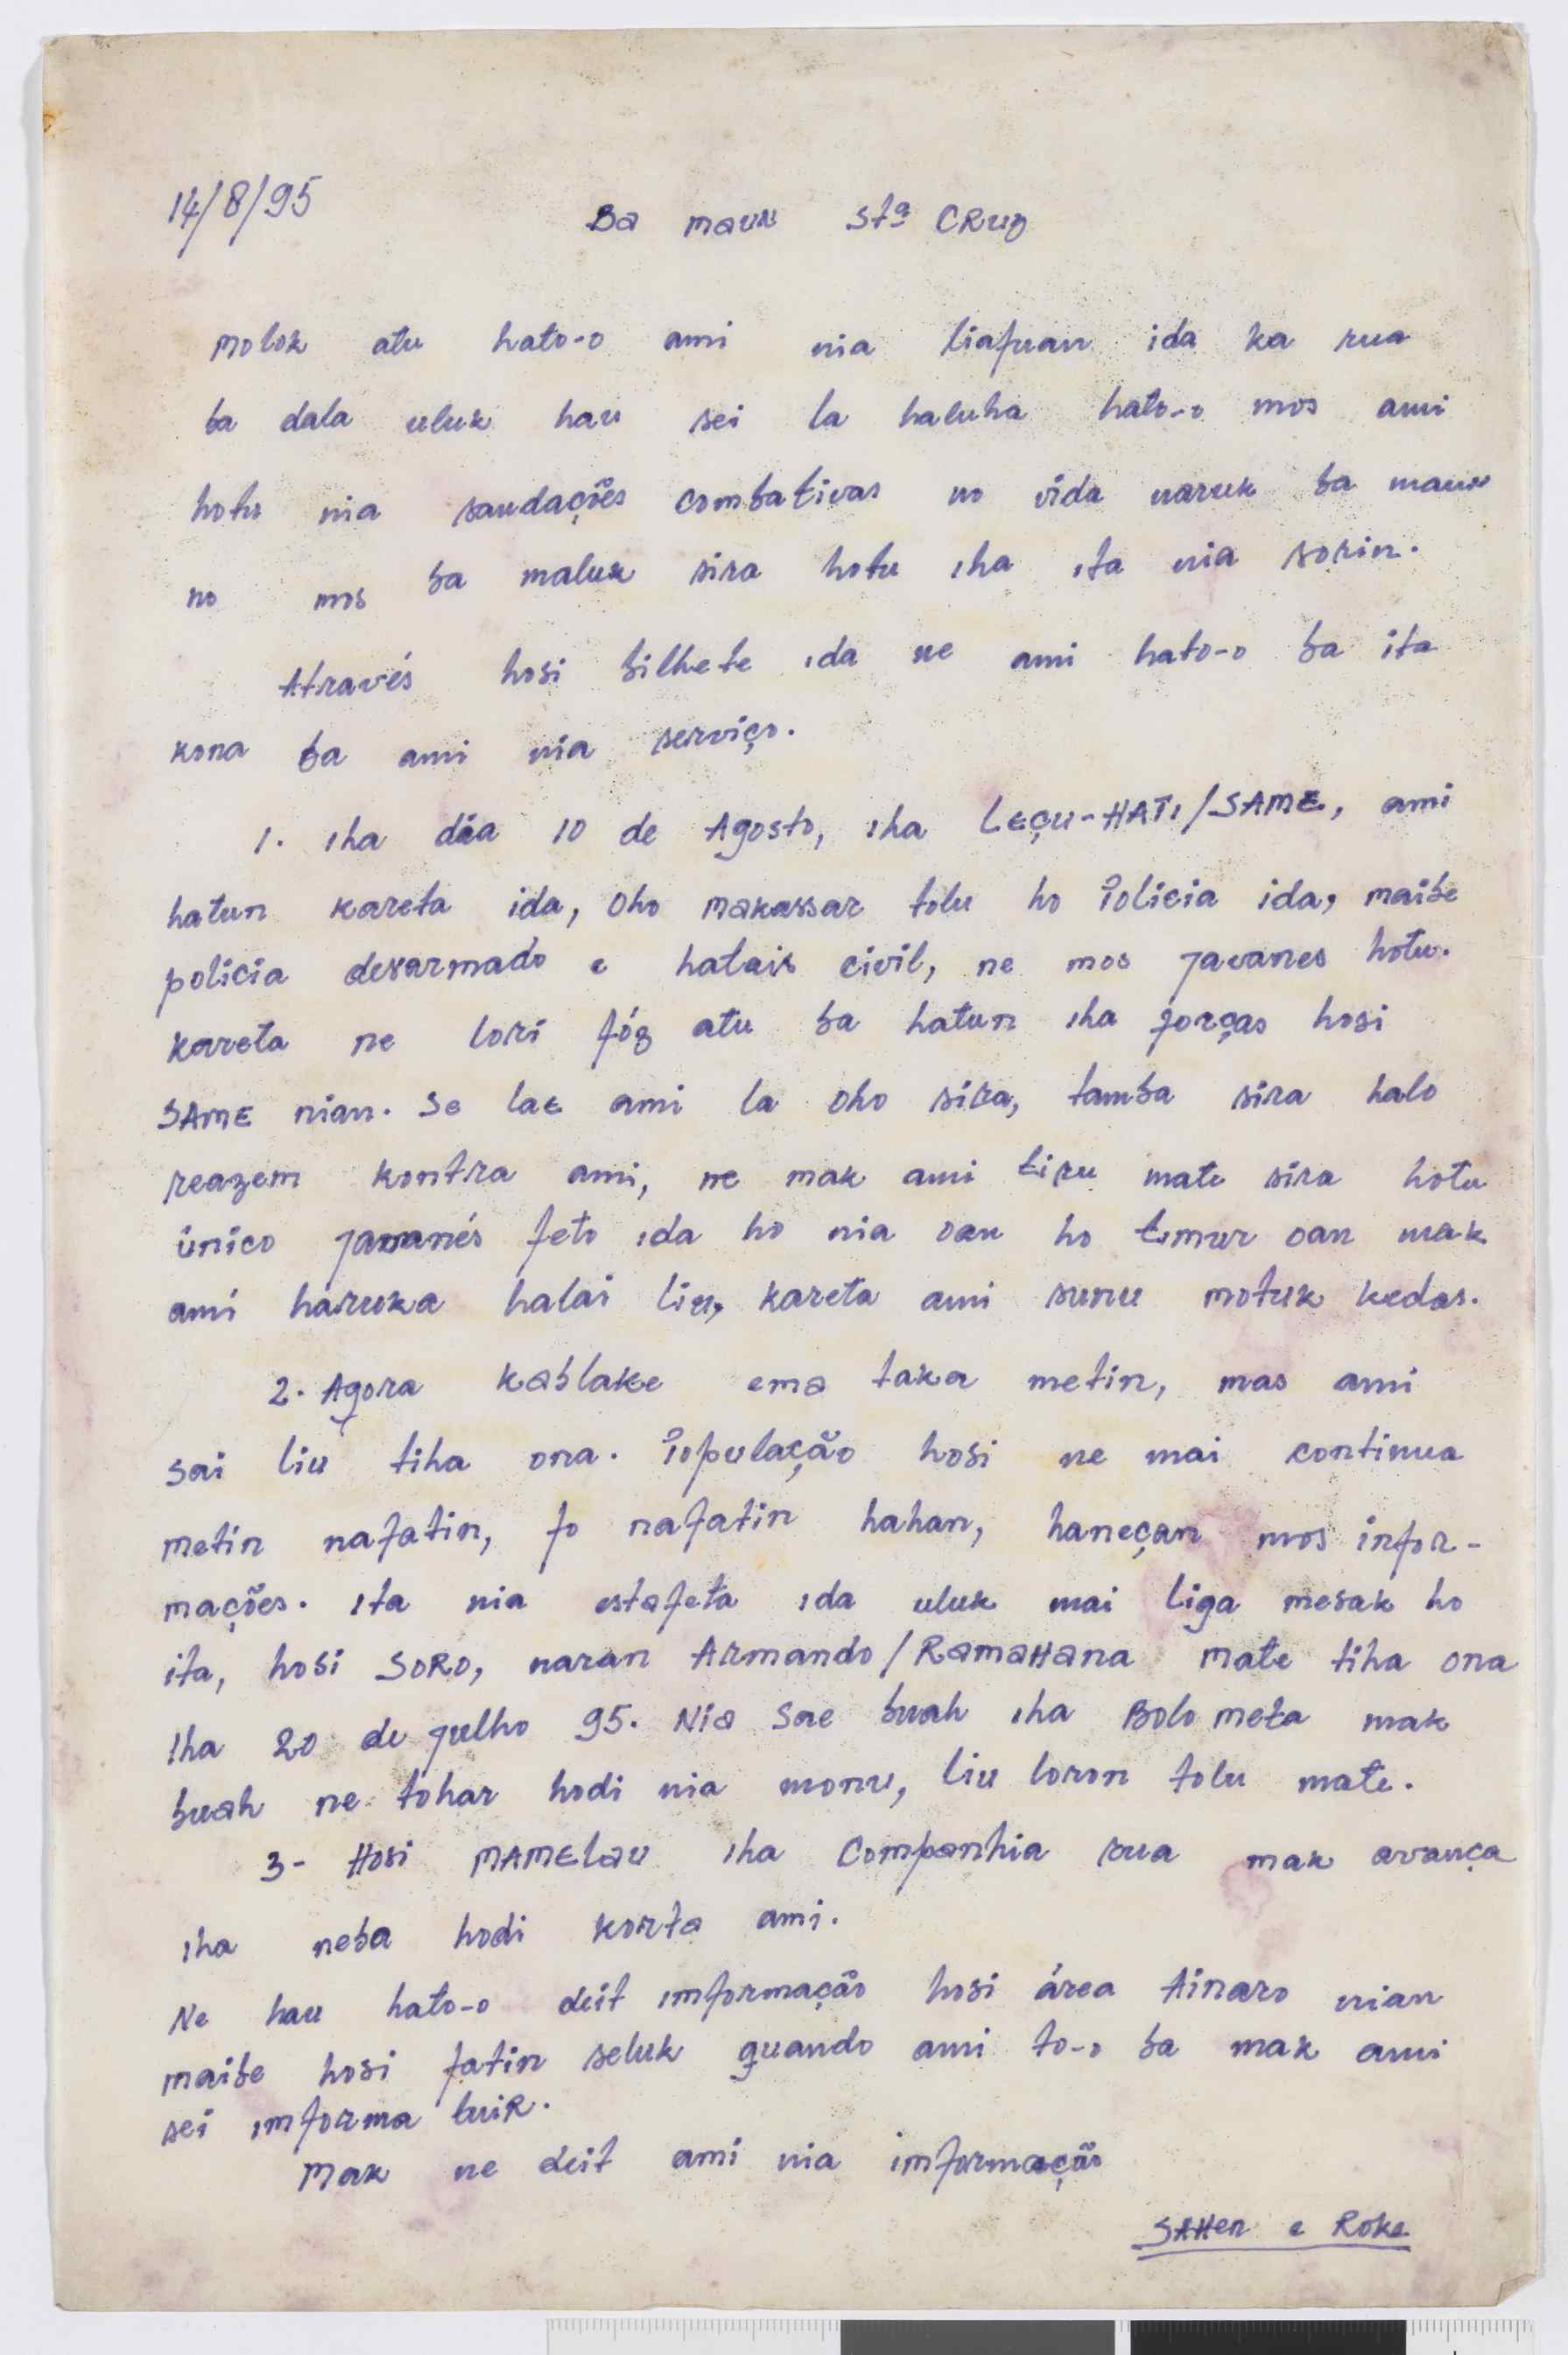 14/8/95
Ba maun Stª CRuz
Molok atu hato-o ami nia liafuan ida ka rua
ba dala uluk hau sei la haluha hato-o mos ami
hotu nia saudações combativas no vida naruk ba maun
no mos ba maluk sira hotu iha ita nia sorin.
Através hosi bilhete ida ne ami hato-o ba ita
kona ba ami nia serviço.
1. Iha dia 10 de Agosto, iha LEÇU-HATI/SAME, ami
hatun kareta ida, oho makassar tolu ho Polícia ida, maibe
polícia desarmado e hatais civil, ne mos javanes hotu.
Kareta ne lori fóz atu ba hatun iha forças hosi
SAME nian. Se lae ami la oho sira, tamba sira halo
reazem kontra ami, ne mak ami tiru mate sira hotu
único javanés feto ida ho nia oan ho timur oan mak
ami haruka halai liu, kareta ami sunu motuk kedas.
2. Agora Kablake ema taka metin, mas ami
sai liu tiha ona. População hosi ne mai continua
metin nafatin, fo nafatin hahan, haneçan mos infor-
mações. Ita nia estafeta ida uluk mai liga mesak ho
ita, hosi SORO, naran Armando/RamaHana mate tiha ona
Iha 20 de julho 95. Nia Sae buah iha Bolo meta mak
buah ne tohar hodi nia monu, liu loron tolu mate.
3- Hosi MAMElau iha Companhia rua mak avança
iha neba hodi korta ami.
Ne hau hato-o deit imformação hosi área Ainaro nian
maibe hosi fatin seluk quando ami to-o ba mak ami
sei imforma tuiR.
Mak ne deit ami nia imformação
SAHen e Roke